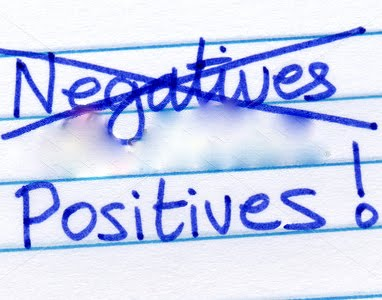 Negatives
Positives!